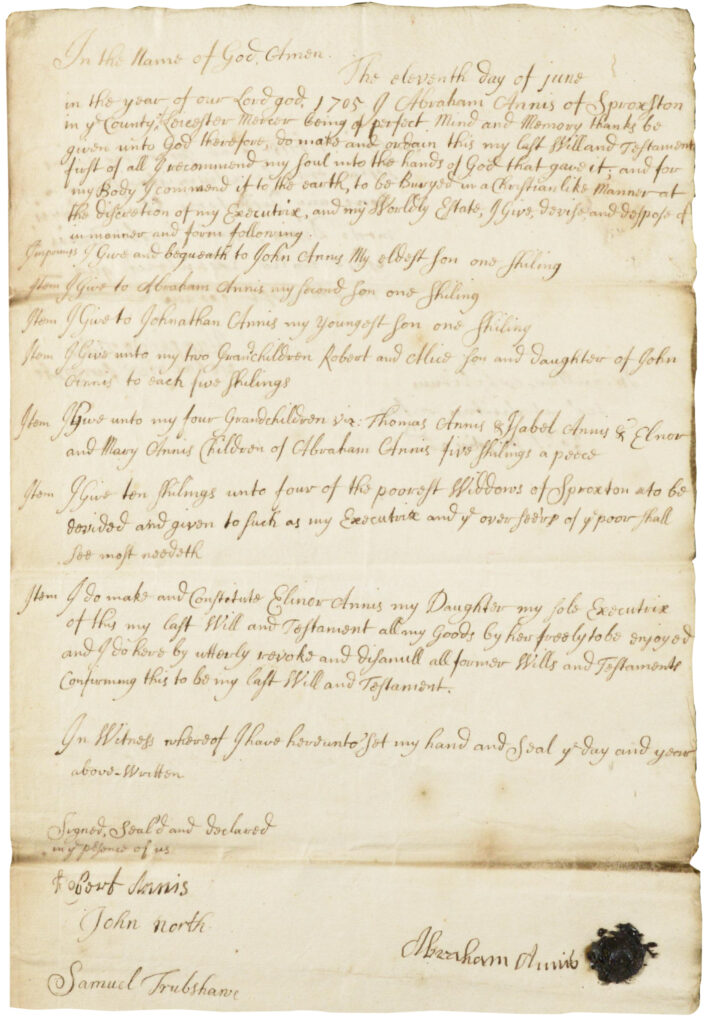 In the Name of God, Amen.
The eleventh day of june
in the year of our Lord god, 1705 I Abraham Annis of Sproxston
in ye County, Leicester Mercer being of perfect Mind and Memory thanks be
given unto God therefore, do make and ordain this my last Will and Testament
first of all I recommend my soul into the hands of God that gave it; and for
my Body I commend it to the earth, to be Buryed in a Christian like Manner at
the discretion of my Executrix, and my Worldly Estate, I Give, devise and despose of
in manner and form following.
Imprimis I Give and bequeath to John Annis My eldest son one shiling
Item I Give to Abraham Annis my second son one shiling
Item I Give to Johnathan Annis my youngest son one shiling
Item I Give unto my two Grandchildren Robert and Alice son and daughter of John
Annis to each five shilings
Item I Give unto my four Grandchildren viz: Thomas Annis & Isabel Annis & Elnor
and Mary Annis Children of Abraham Annis five shilings a peece
Item I Give ten shilings unto four of the poorest Widdows of Sproxton to be
devided and given to such as my Executrix and ye overseers of ye poor shall
see most needeth
Item I do make and Constitute Elinor Annis my Daughter my sole Executrix
of this my last Will and Testament all my Goods by her freely to be enjoyed
and I do here by utterly revoke and disanull all former Wills and Testaments
Confirming this to be my last Will and Testament.
In Witness whereof I have hereunto set my hand and seal ye day and year
above-Written
Signed, Seal'd and declared
in ye psence of us
Annis
John North
Abraham Annis
Samuel Trubshawe